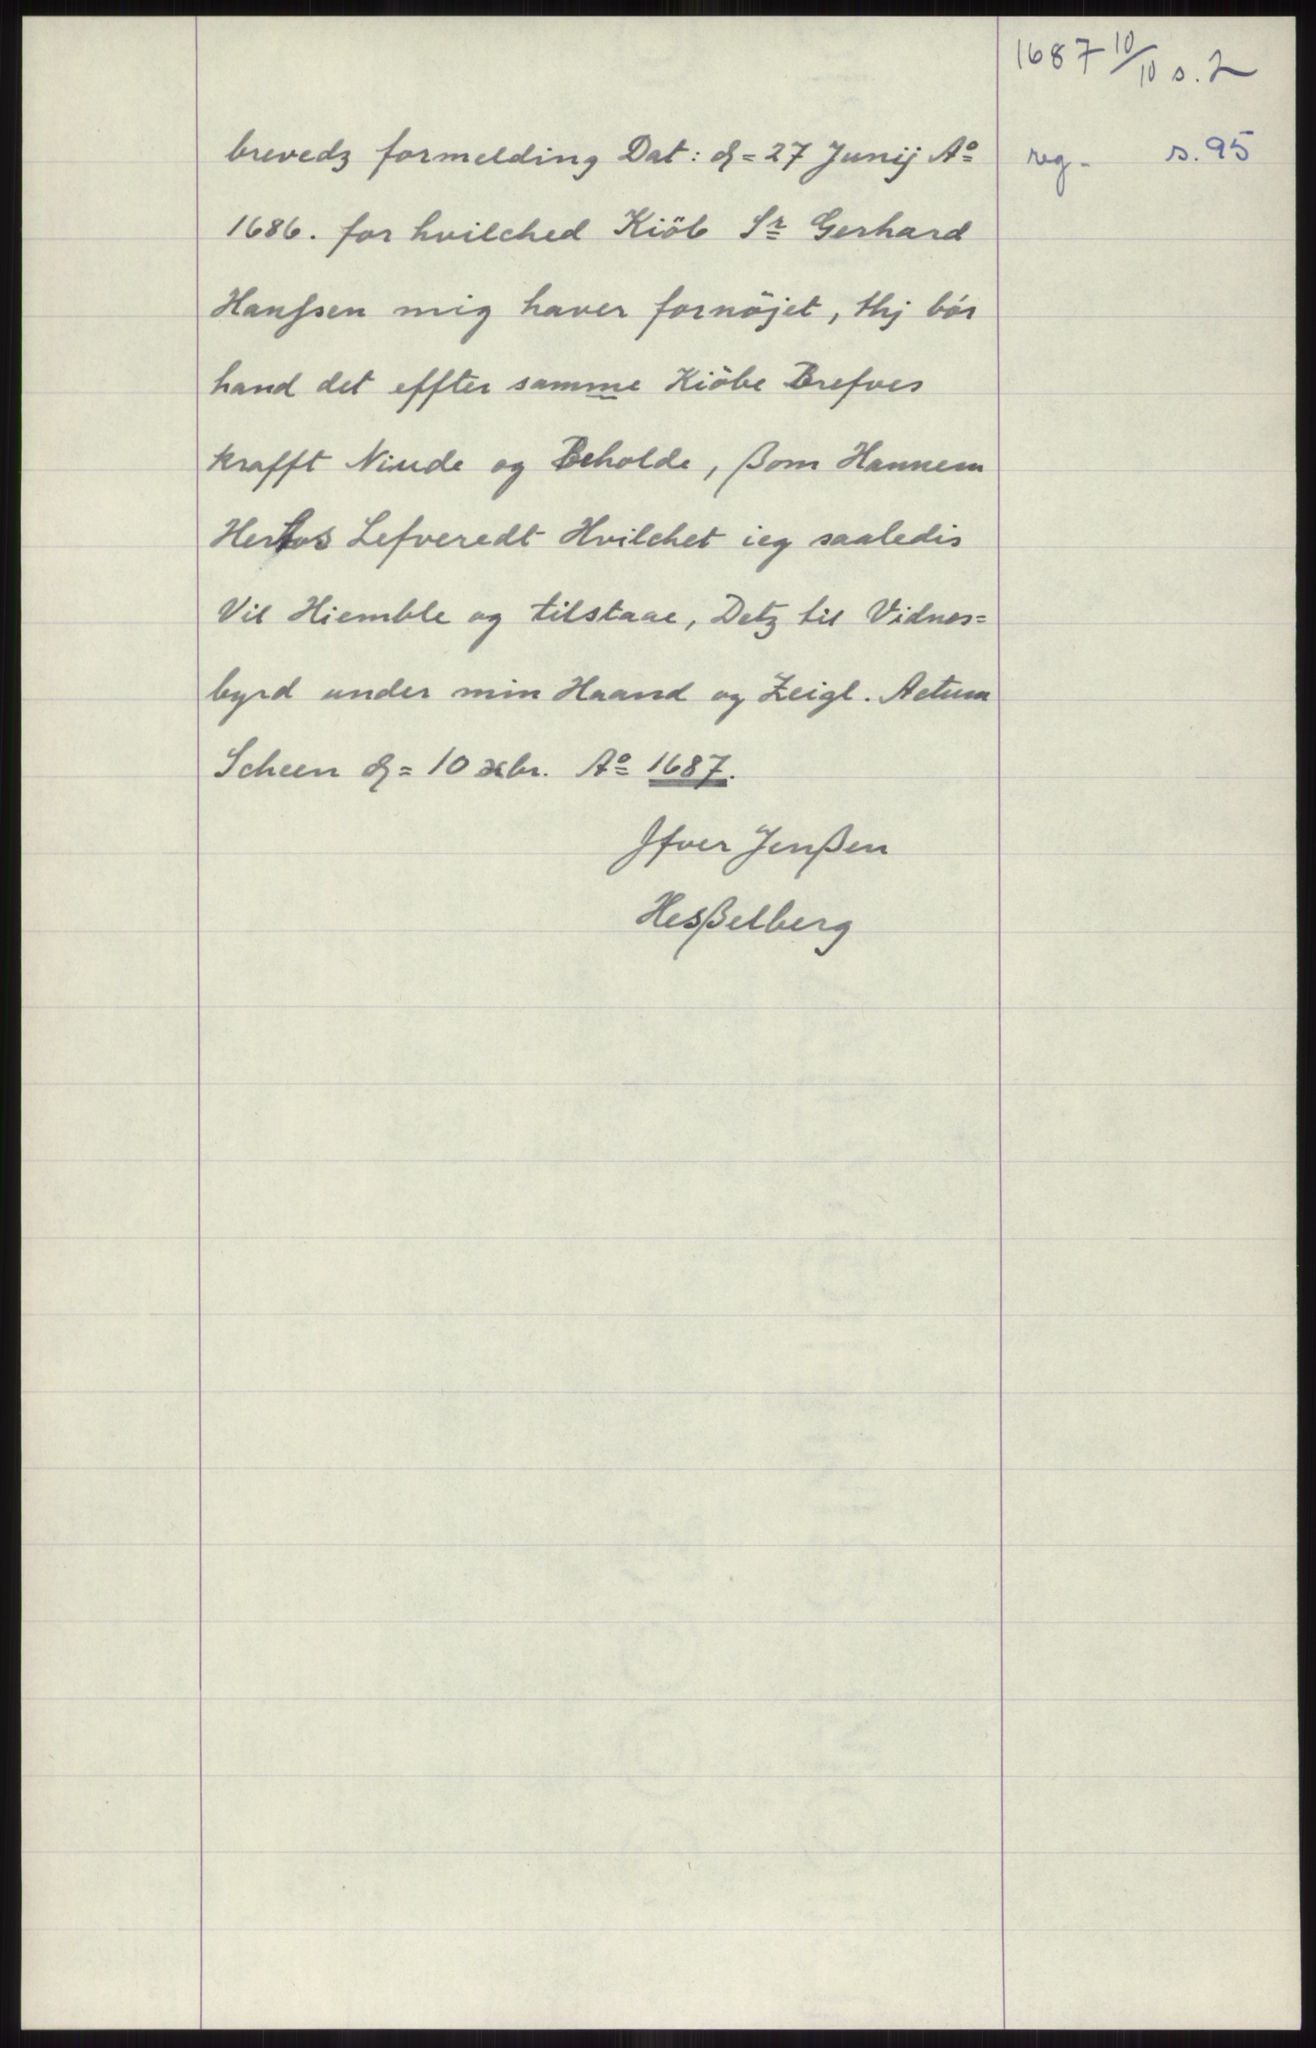 1687 10/10 s. 2
reg. s. 95
brevedz formelding Dat: d= 27 Junij Ao
1686. for hvilched Kiöb Sr Gerhard
Hanssen mig haver fornöjet, thj bör
hand det effter samme Kiöbe Brefves
krafft Niude og Beholde, ßom Hannem
Lefveredt Hvilchet ieg saaledis
Vil Hiemble og tilstaae, Detz til Vidnes=
byrd under min Haand og Zeigl. Actum
Scheen d= 10 xbr. Ao 1687.
Jfver Jenßen
Hesßelberg